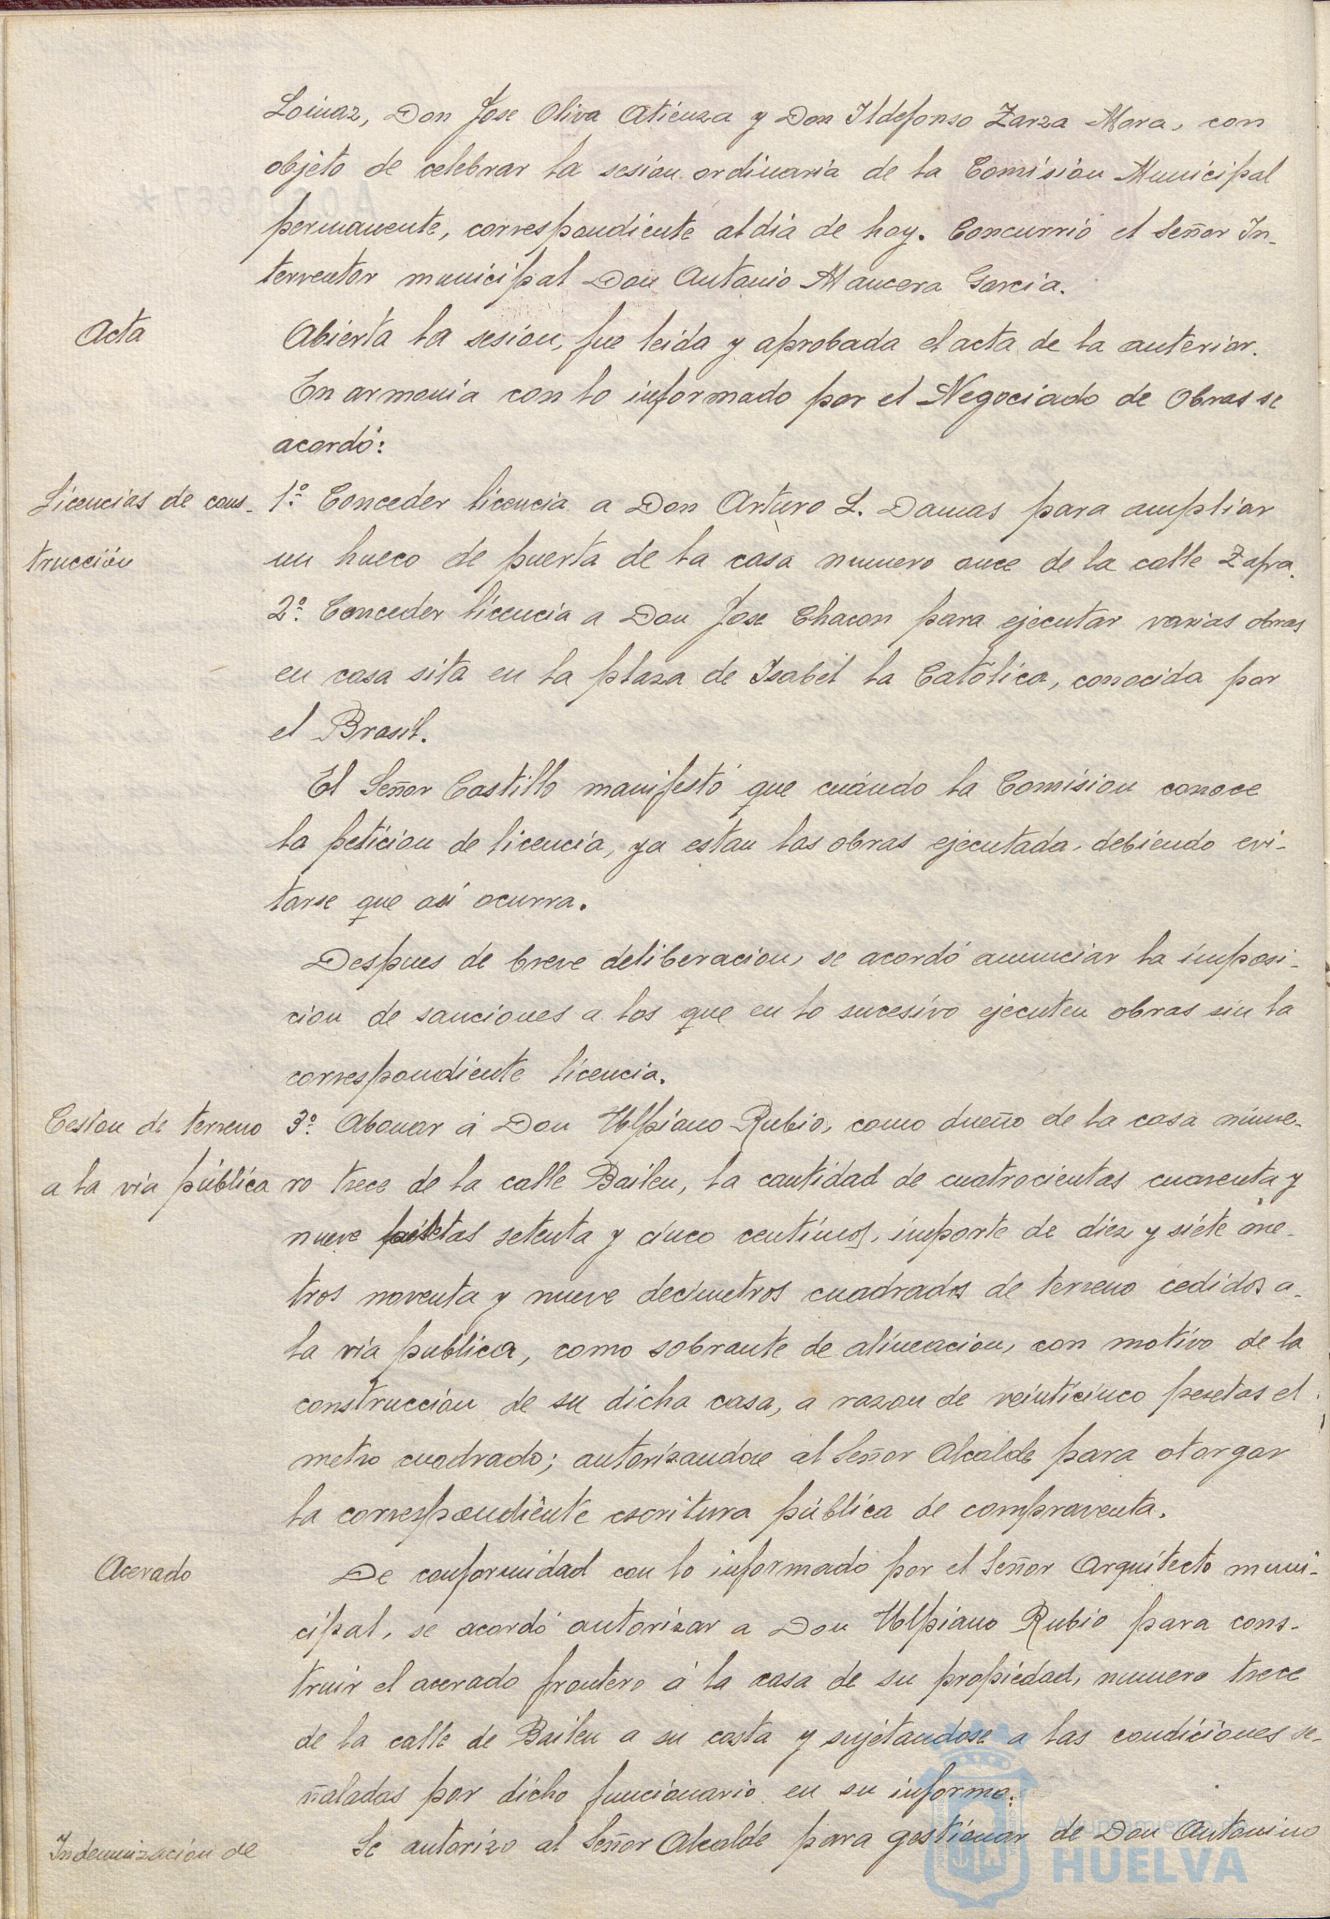 Loinaz, Don Jose Oliva Atienza y Don Ildefonso Zarza Mora, con
objeto de celebrar la sesion ordinaria de la Comisión Municipal
permanente, correspondiente al dia de hoy. Concurrió el Señor In-
terventor municipal Don Antonio Mancera Garcia.
Acta
Abierta la sesion, fue leida y aprobada el acta de la anterior.
En armonia con lo informado por el Negociado de Obras se
acordó:
Licencias de cons-
trucción
1º. Conceder licencia a Don Arturo L. Damas para ampliar
un hueco de puerta de la casa numero once de la calle Zafra.
2º. Conceder licencia a Don Jose Chacon para ejecutar varias obras
en casa sita en la plaza de Isabel la Católica, conocida por
el Brasil.
El Señor Castillo manifestó que cuándo la Comision conoce
la peticion de licencia, ya estan las obras ejecutada, debiendo evi-
tarse que así ocurra.
Despues de breve deliberacion, se acordó anunciar la imposi-
cion de sanciones a los que en lo sucesivo ejecuten obras sin la
correspondiente licencia.
Cesion de terreno
a la via pública
3º. Abonar á Don Ulpiano Rubio, como dueño de la casa núme-
ro trece de la calle Bailen, la cantidad de cuatrocientas cuarenta y
nueve pesetas setenta y cinco centimos, importe de diez y siete me-
tros noventa y nueve decimetros cuadrados de terreno cedidos a-
la via publica, como sobrante de alineacion, con motivo de la
construccion de su dicha casa, a razon de veinticinco pesetas el
metro cuadrado; autorizandose al Señor Alcalde para otorgar
la correspondiente escritura pública de compraventa.
Acerado
De conformidad con lo informado por el Señor Arquitecto muni-
cipal, se acordó autorizar a Don Ulpiano Rubio para cons-
truir el acerado frontero á la casa de su propiedad, numero trece
de la calle de Bailen a su costa y sujetandose a las condiciones se-
ñaladas por dicho funcionario en su informe.
Indemnización de
Se autorizo al Señor Alcalde para gestionar de Don Antonino
Ayuntamiento de
HUELVA